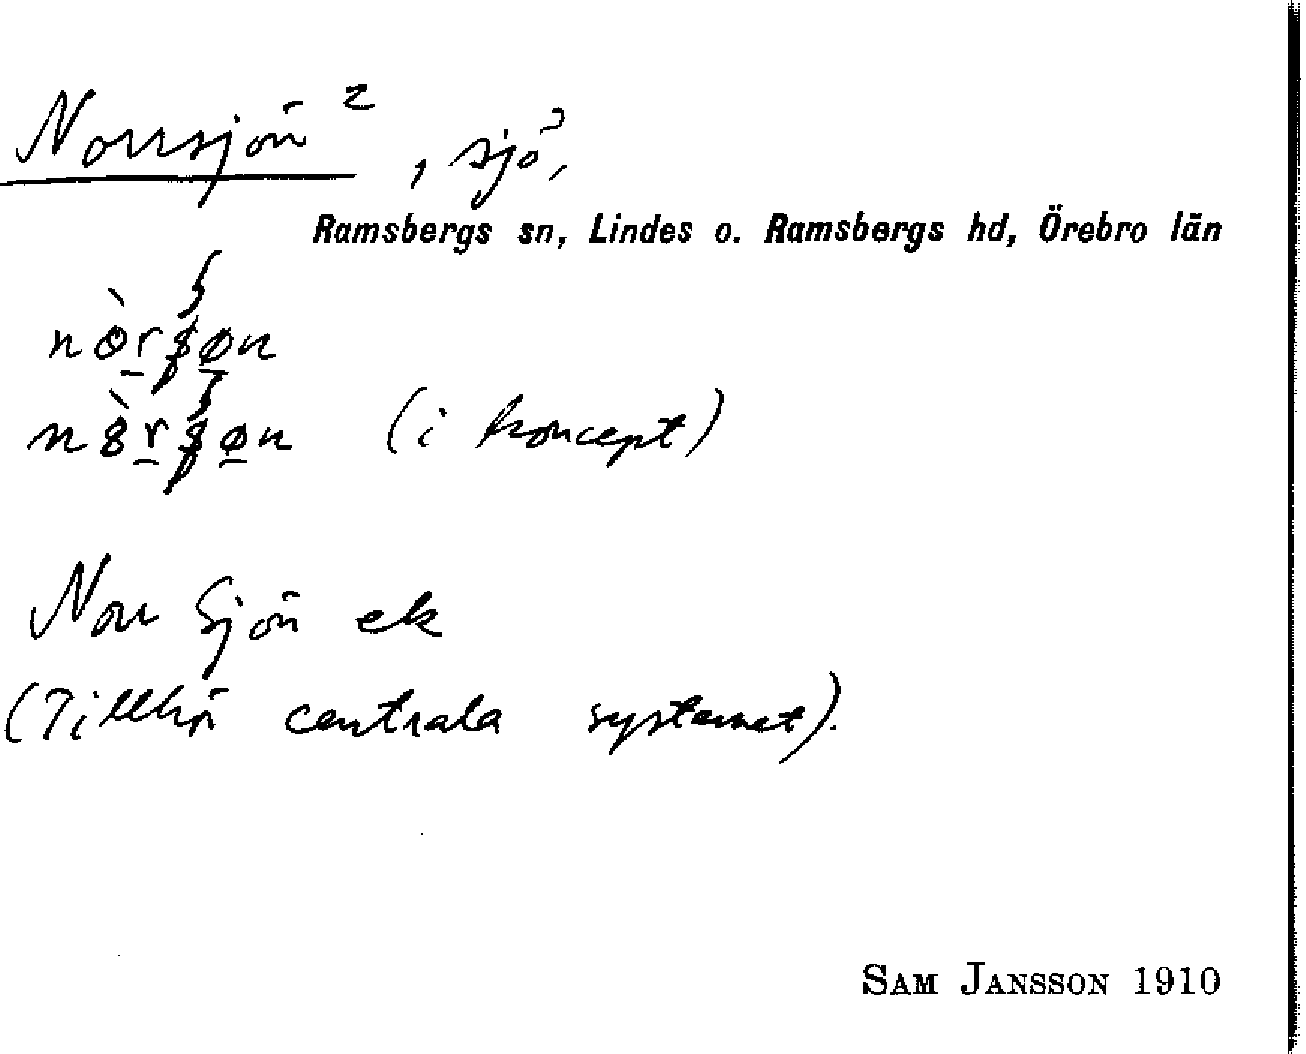 Norrsjön 2 , sjö,
Ramsbergs sn, Lindes o. Ramsbergs hd, Örebro län
(i koncept)
Norr Sjön ek
(Tillhör centrala systemet).
SAM JANSSON 1910